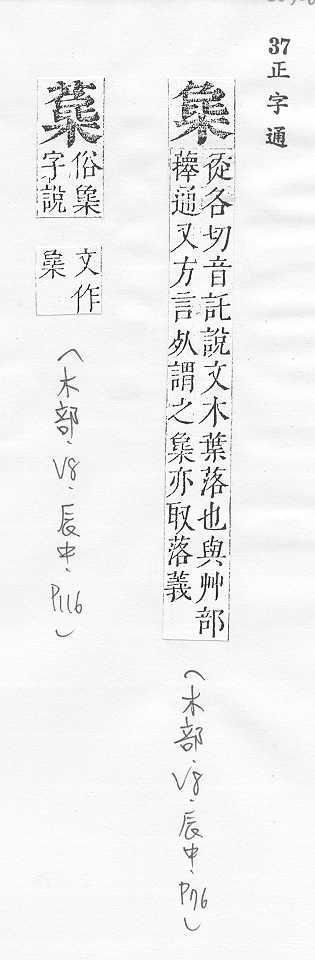 37正字通
從各切音託說文木葉落也與艸部
蘀通又方言謂之亦取落義
（木部．V8．辰中．P76）
俗
字說
文作
（木部．V8．辰中．P116）